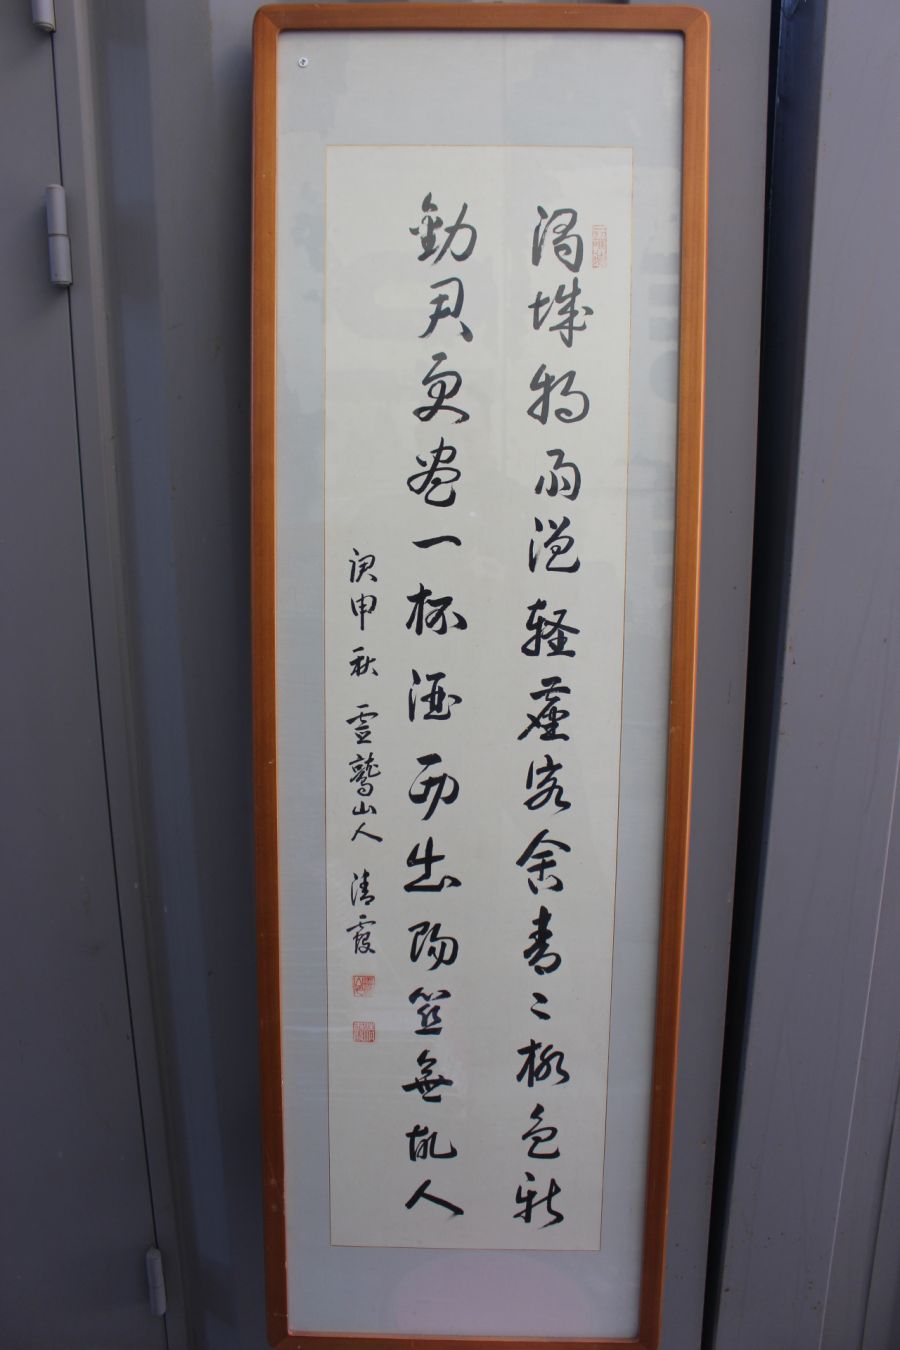 渭城朝雨浥軽塵客舎青〻柳色新
勧君更盡一杯酒西出陽関無故人
庚申秋 霊鷲山人 清霞